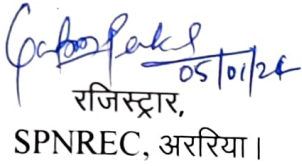 05/01/24
रजिस्ट्रार,
SPNREC, अररिया।